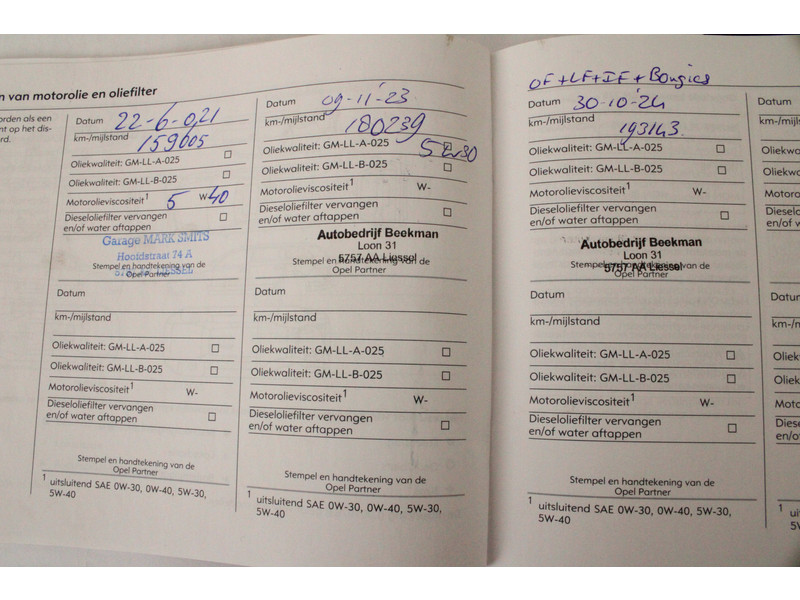 n van motorolie en oliefilter
orden als een
nt op het dis-
rd.
Datum 22-6-021
km-/mijlstand 159005
Oliekwaliteit: GM-LL-A-025
Oliekwaliteit: GM-LL-B-025
Motorolieviscositeit1 5 W-40
Dieseloliefilter vervangen
en/of water aftappen
Garage MARK SMITS
Hoofdstraat 74 A
LIESSEL
Stempel en handtekening van de
Opel Partner
Datum
km-/mijlstand
Oliekwaliteit: GM-LL-A-025
Oliekwaliteit: GM-LL-B-025
Motorolieviscositeit1 W-
Dieseloliefilter vervangen
en/of water aftappen
Stempel en handtekening van de
Opel Partner
1 uitsluitend SAE 0W-30, 0W-40, 5W-30,
5W-40
Datum 09-11-23
km-/mijlstand 180239
Oliekwaliteit: GM-LL-A-025
5W30
Oliekwaliteit: GM-LL-B-025
Motorolieviscositeit1 W-
Dieseloliefilter vervangen
en/of water aftappen
Autobedrijf Beekman
Loon 31
5757 AA Liessel
Stempel en handtekening van de
Opel Partner
Datum
km-/mijlstand
Oliekwaliteit: GM-LL-A-025
Oliekwaliteit: GM-LL-B-025
Motorolieviscositeit1 W-
Dieseloliefilter vervangen
en/of water aftappen
Stempel en handtekening van de
Opel Partner
1 uitsluitend SAE 0W-30, 0W-40, 5W-30,
5W-40
OF+LF+IF+Bougies
Datum 30-10-24
km-/mijlstand 193143
Oliekwaliteit: GM-LL-A-025
Oliekwaliteit: GM-LL-B-025
Motorolieviscositeit1 W-
Dieseloliefilter vervangen
en/of water aftappen
Autobedrijf Beekman
Loon 31
5757 AA Liessel
Stempel en handtekening van de
Opel Partner
Datum
km-/mijlstand
Oliekwaliteit: GM-LL-A-025
Oliekwaliteit: GM-LL-B-025
Motorolieviscositeit1 W-
Dieseloliefilter vervangen
en/of water aftappen
Stempel en handtekening van de
Opel Partner
1 uitsluitend SAE 0W-30, 0W-40, 5W-30,
5W-40
Datum
km-/mijls
Oliekwa
Oliekwa
Motorol
Diesel
en/of w
Datum
km-/m
Oliek
Oliek
Moto
Diese
en/o
1 ui
5W